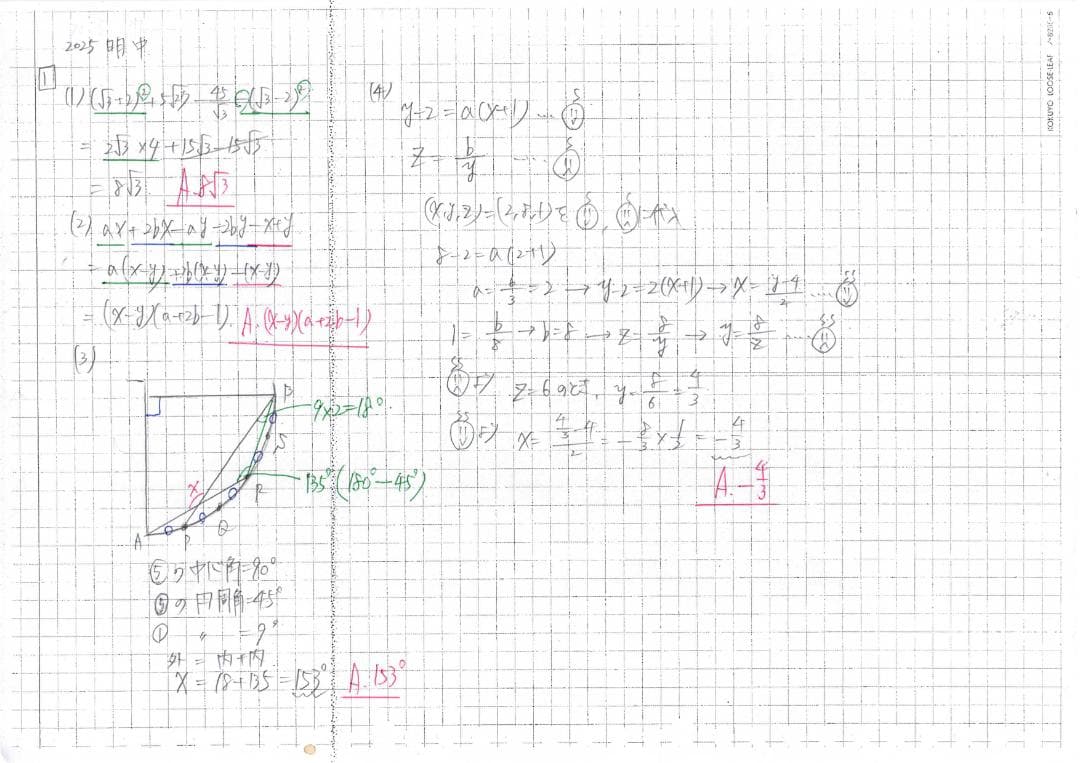 2025 明中
1
(1) (√3+2)²+5√27-45/√3-(√3-2)²
= 2√3×4+15√3-15√3
= 8√3 A.8√3
(2) ax+2bx-ay-2by-x+y
= a(x-y)+2b(x-y)-(x-y)
= (x-y)(a+2b-1) A.(x-y)(a+2b-1)
(3)
B
9×2=18°
S
135°(180°-45°)
R
x
Q
P
A
⑤の中心角=90°
⑤の円周角=45°
① 〃 =9°
外=内+内
x=18+135=153° A.153°
(4)
y-2=a(x+1)…
z=b/y …
(x,y,z)=(2,8,1)を , に代入
8-2=a(2+1)
a=6/3=2→y-2=2(x+1)→x=(y-4)/2…
1=b/8→b=8→z=8/y→y=8/z…
より z=6のとき、y=8/6=4/3
より x=(4/3-4)/2=-8/3×1/2=-4/3
A.-4/3
KOKUYO LOOSE-LEAF